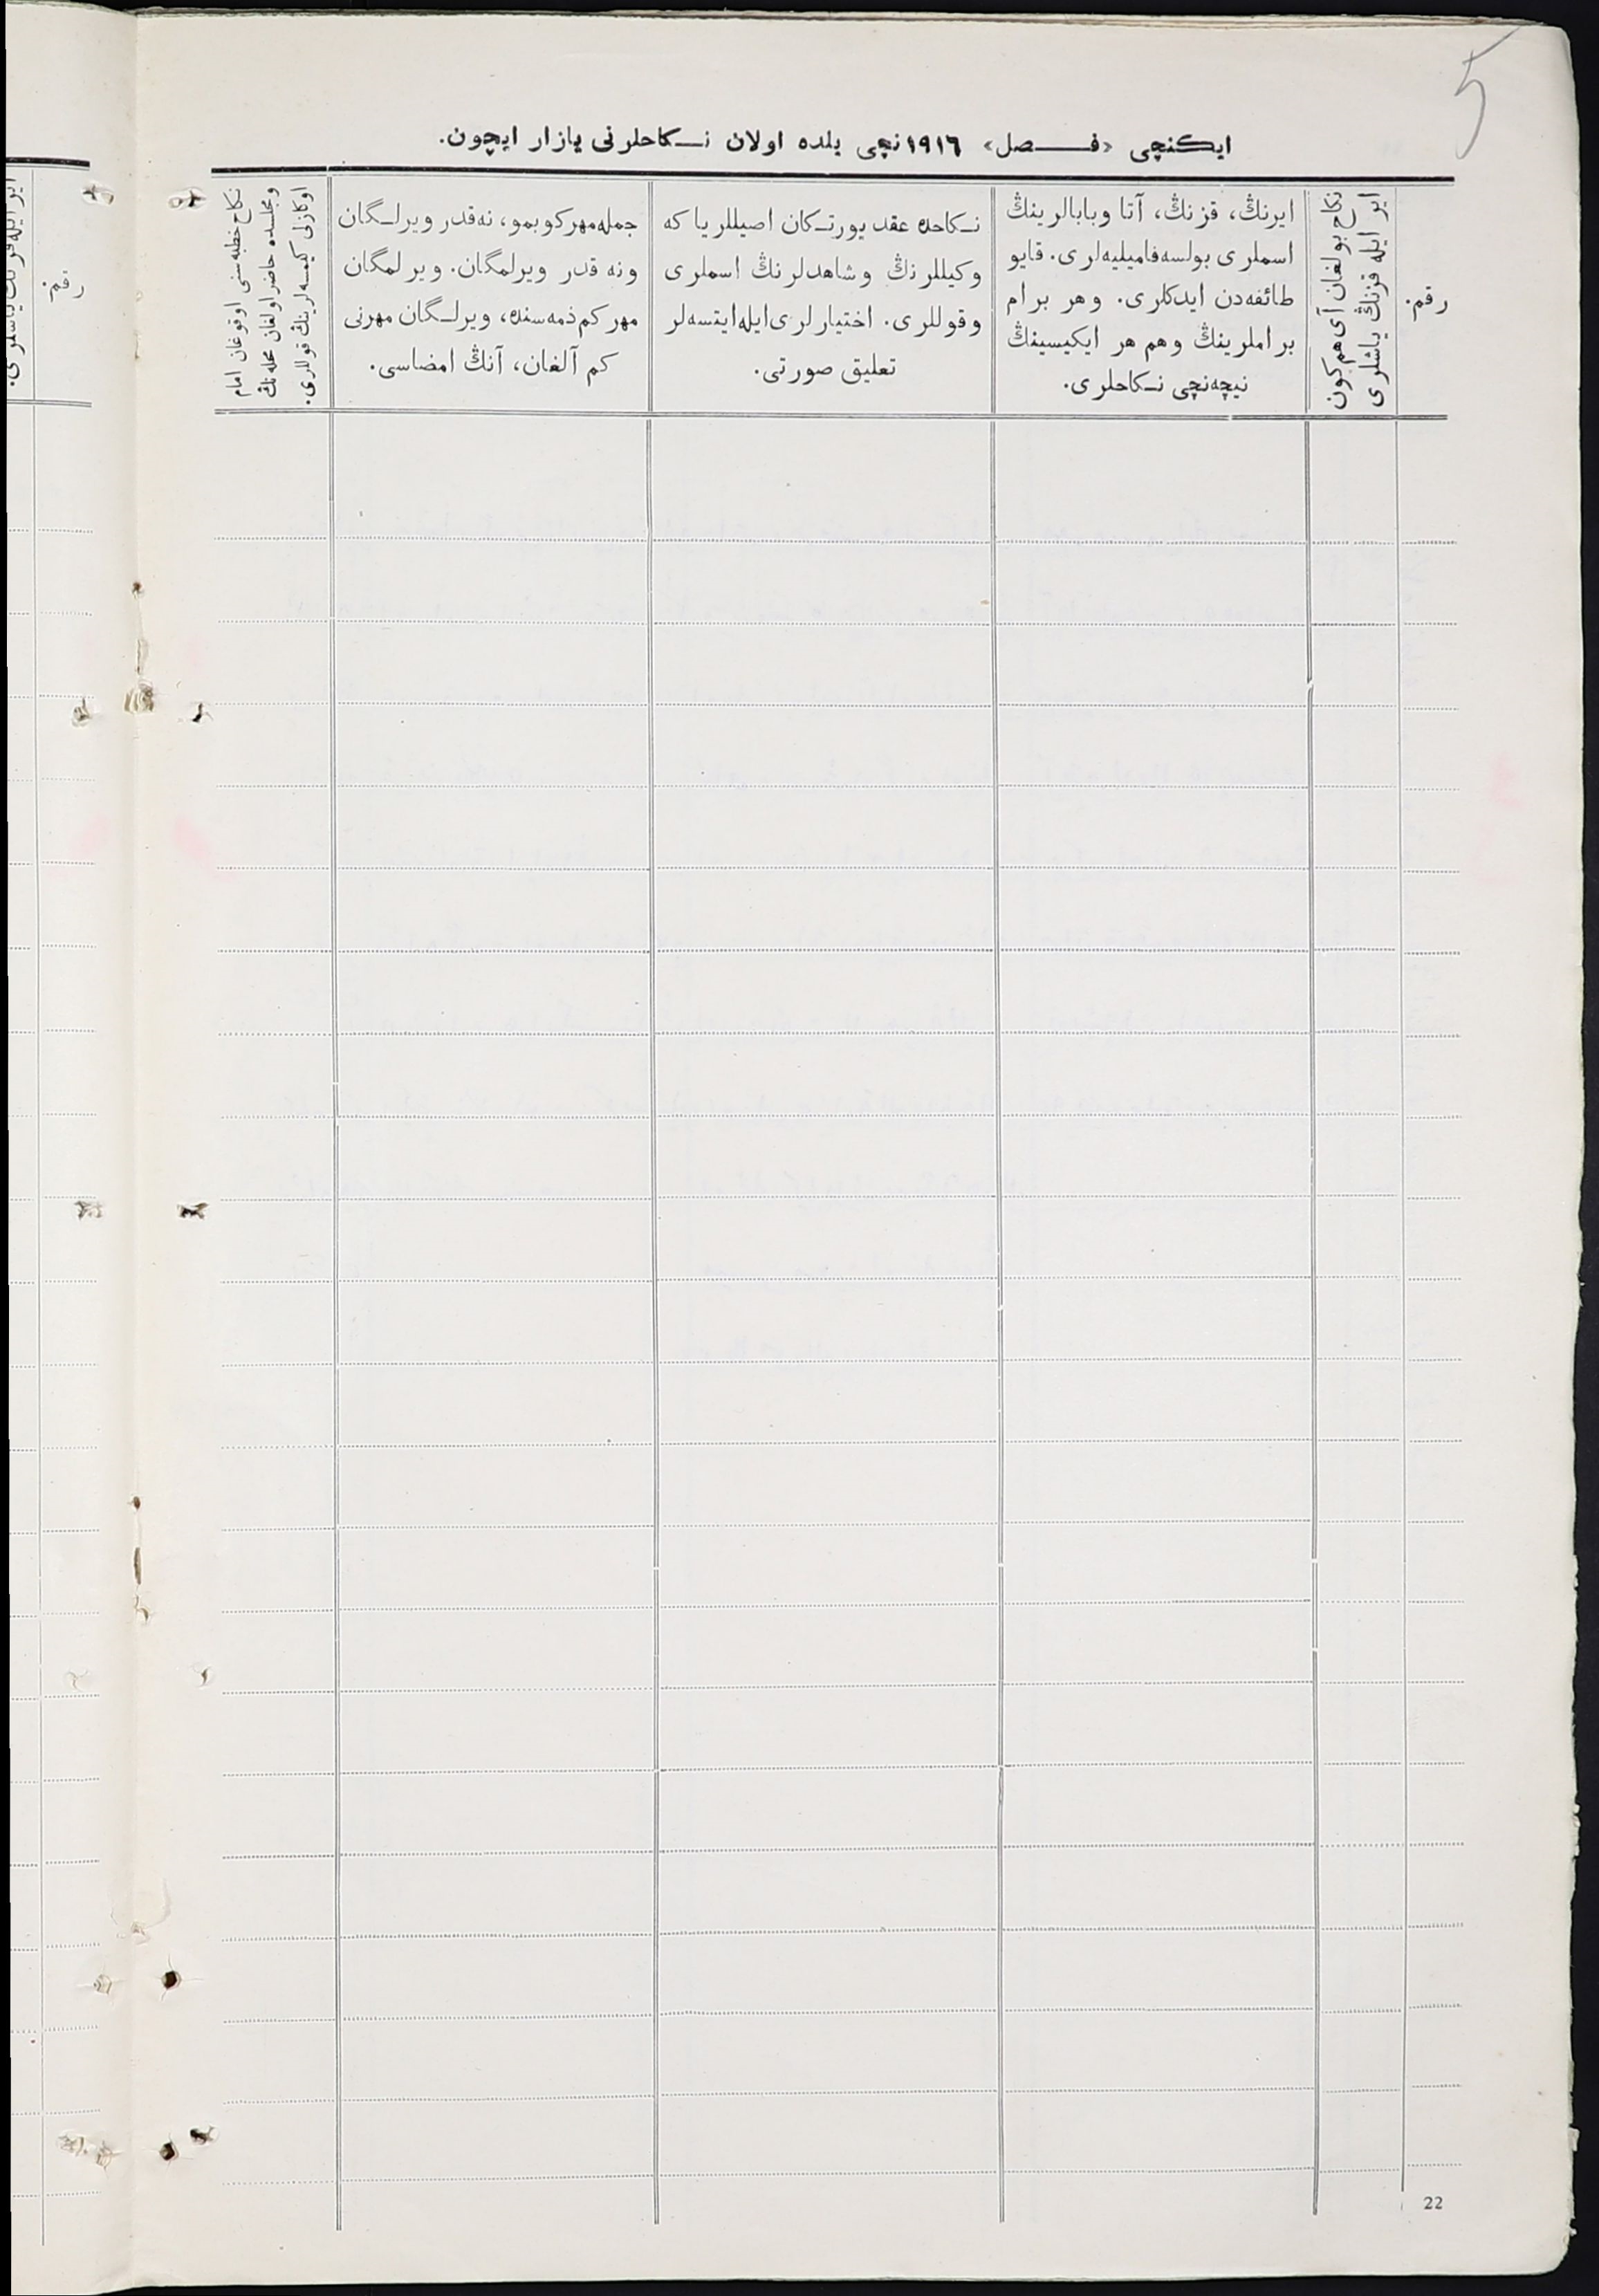 5
ایکنچی «فصل» ١٩١٦نچی یلده اولان نکاحلرنی یازار ایچون.
رقم.
نکاح بولغان آی هم کون
ایر ایله قزنڭ یاشلری
ایرنڭ، قزنڭ، آتا وبابالرینڭ
اسملری بولسه فامیلیه‌لری. قایو
طائفه‌دن ایدکلری. وهر برام
براملرینڭ وهم هر ایکیسینڭ
نیچه‌نچی نکاحلری.
نکاحده عقد یورتکان اصیللر یا که
وکیللرنڭ وشاهدلرنڭ اسملری
وقوللری. اختیارلری ایله ایتسه‌لر
تعلیق صورتی.
جمله مهر کوبمو، نه‌قدر ویرلگان
ونه قدر ویرلمگان. ویرلمگان
مهر کم ذمه‌سنده، ویرلگان مهرنی
کم آلغان، آنڭ امضاسی.
نکاح خطبه‌سنی اوقوغان امام
ومجلسده حاضر اولغان محله‌نڭ
اوکازنی کیمسه‌لرینڭ قوللری.
رقم.
22